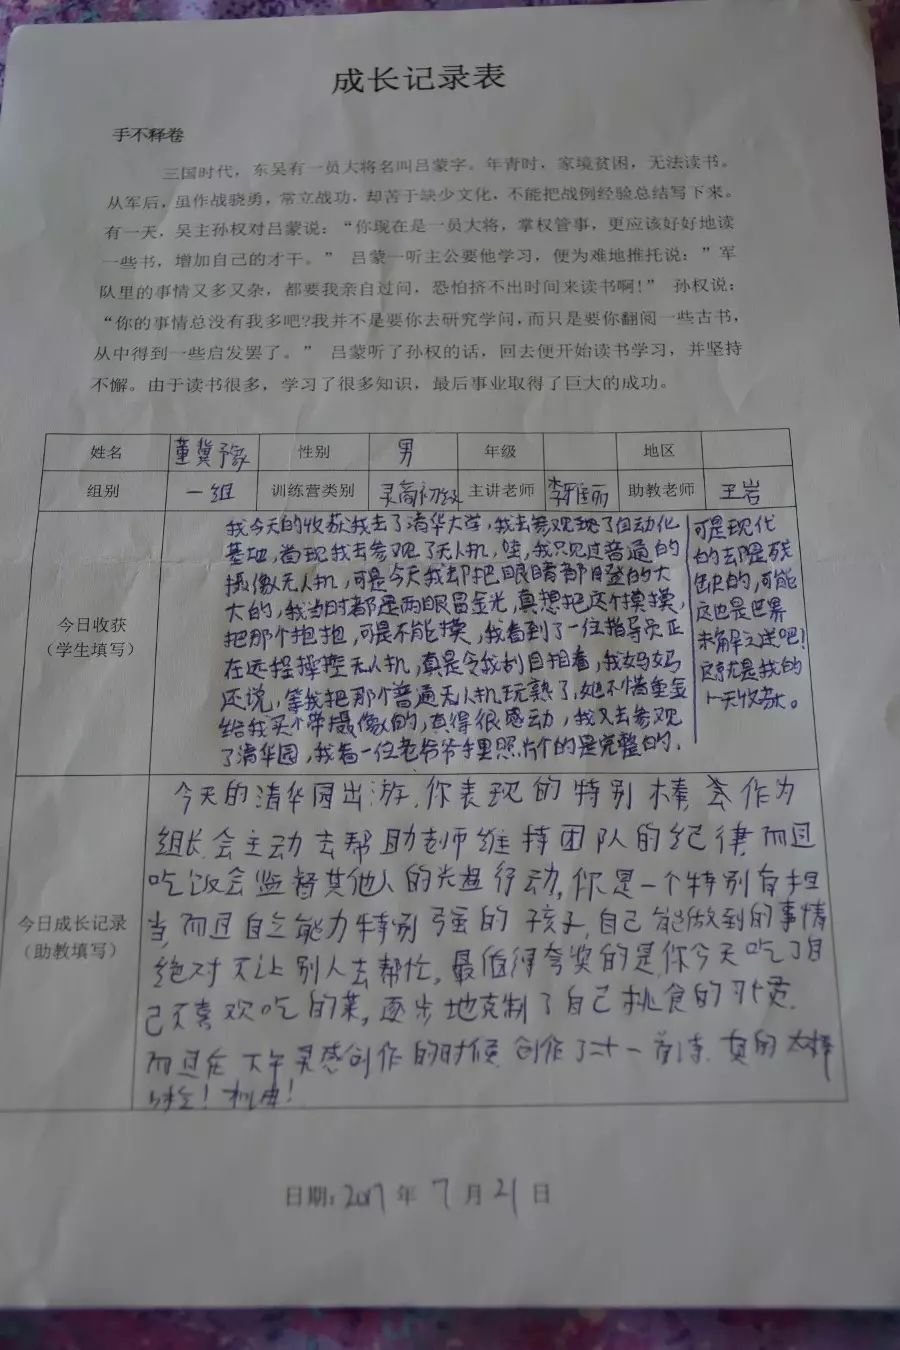 成长记录表
手不释卷
三国时代，东吴有一员大将名叫吕蒙字。年青时，家境贫困，无法读书。
从军后，虽作战骁勇，常立战功，却苦于缺少文化，不能把战例经验总结写下来。
有一天，吴主孙权对吕蒙说：“你现在是一员大将，掌权管事，更应该好好地读
一些书，增加自己的才干。” 吕蒙一听主公要他学习，便为难地推托说：”军
队里的事情又多又杂，都要我亲自过问，恐怕挤不出时间来读书啊!” 孙权说：
“你的事情总没有我多吧?我并不是要你去研究学问，而只是要你翻阅一些古书，
从中得到一些启发罢了。” 吕蒙听了孙权的话，回去便开始读书学习，并坚持
不懈。由于读书很多，学习了很多知识，最后事业取得了巨大的成功。
姓名 董冀豫 性别 男 年级 地区
组别 一组 训练营类别 灵商初级 主讲老师 李雅丽 助教老师 王岩
今日收获
（学生填写）
我今天的收获我去了清华大学，我去参观了自动化
基地，首现我去参观了无人机，哇，我只见过普通的
摄像无人机，可是今天我却把眼睛都瞪的大
大的，我当时都是两眼冒金光，真想把这个摸摸，
把那个抱抱，可是不能摸，我看到了一位指导员正
在远程操控无人机，真是令我刮目相看，我妈妈
还说，等我把那个普通无人机玩熟了，她不惜重金
给我买个带摄像的，真得很感动，我又去参观
了清华园，我看一位老爷爷手里照片个的是完整的，
可是现代
的却是残
缺的，可能
这也是世界
未解之迷吧！
这就是我的
一天收获。
今日成长记录
（助教填写）
今天的清华园出游，你表现的特别棒，作为
组长会主动去帮助老师维持团队的纪律，而且
吃饭会监督其他人的光盘行动，你是一个特别有担
当，而且自立能力特别强的孩子，自己能做到的事情
绝对不让别人去帮忙，最值得夸奖的是，你今天吃了自
己不喜欢吃的菜，逐步地克制了自己挑食的习惯.
而且在下午灵感创作的时候，创作了二十一首诗，真的太棒
日期：2017 年 7 月 21 日